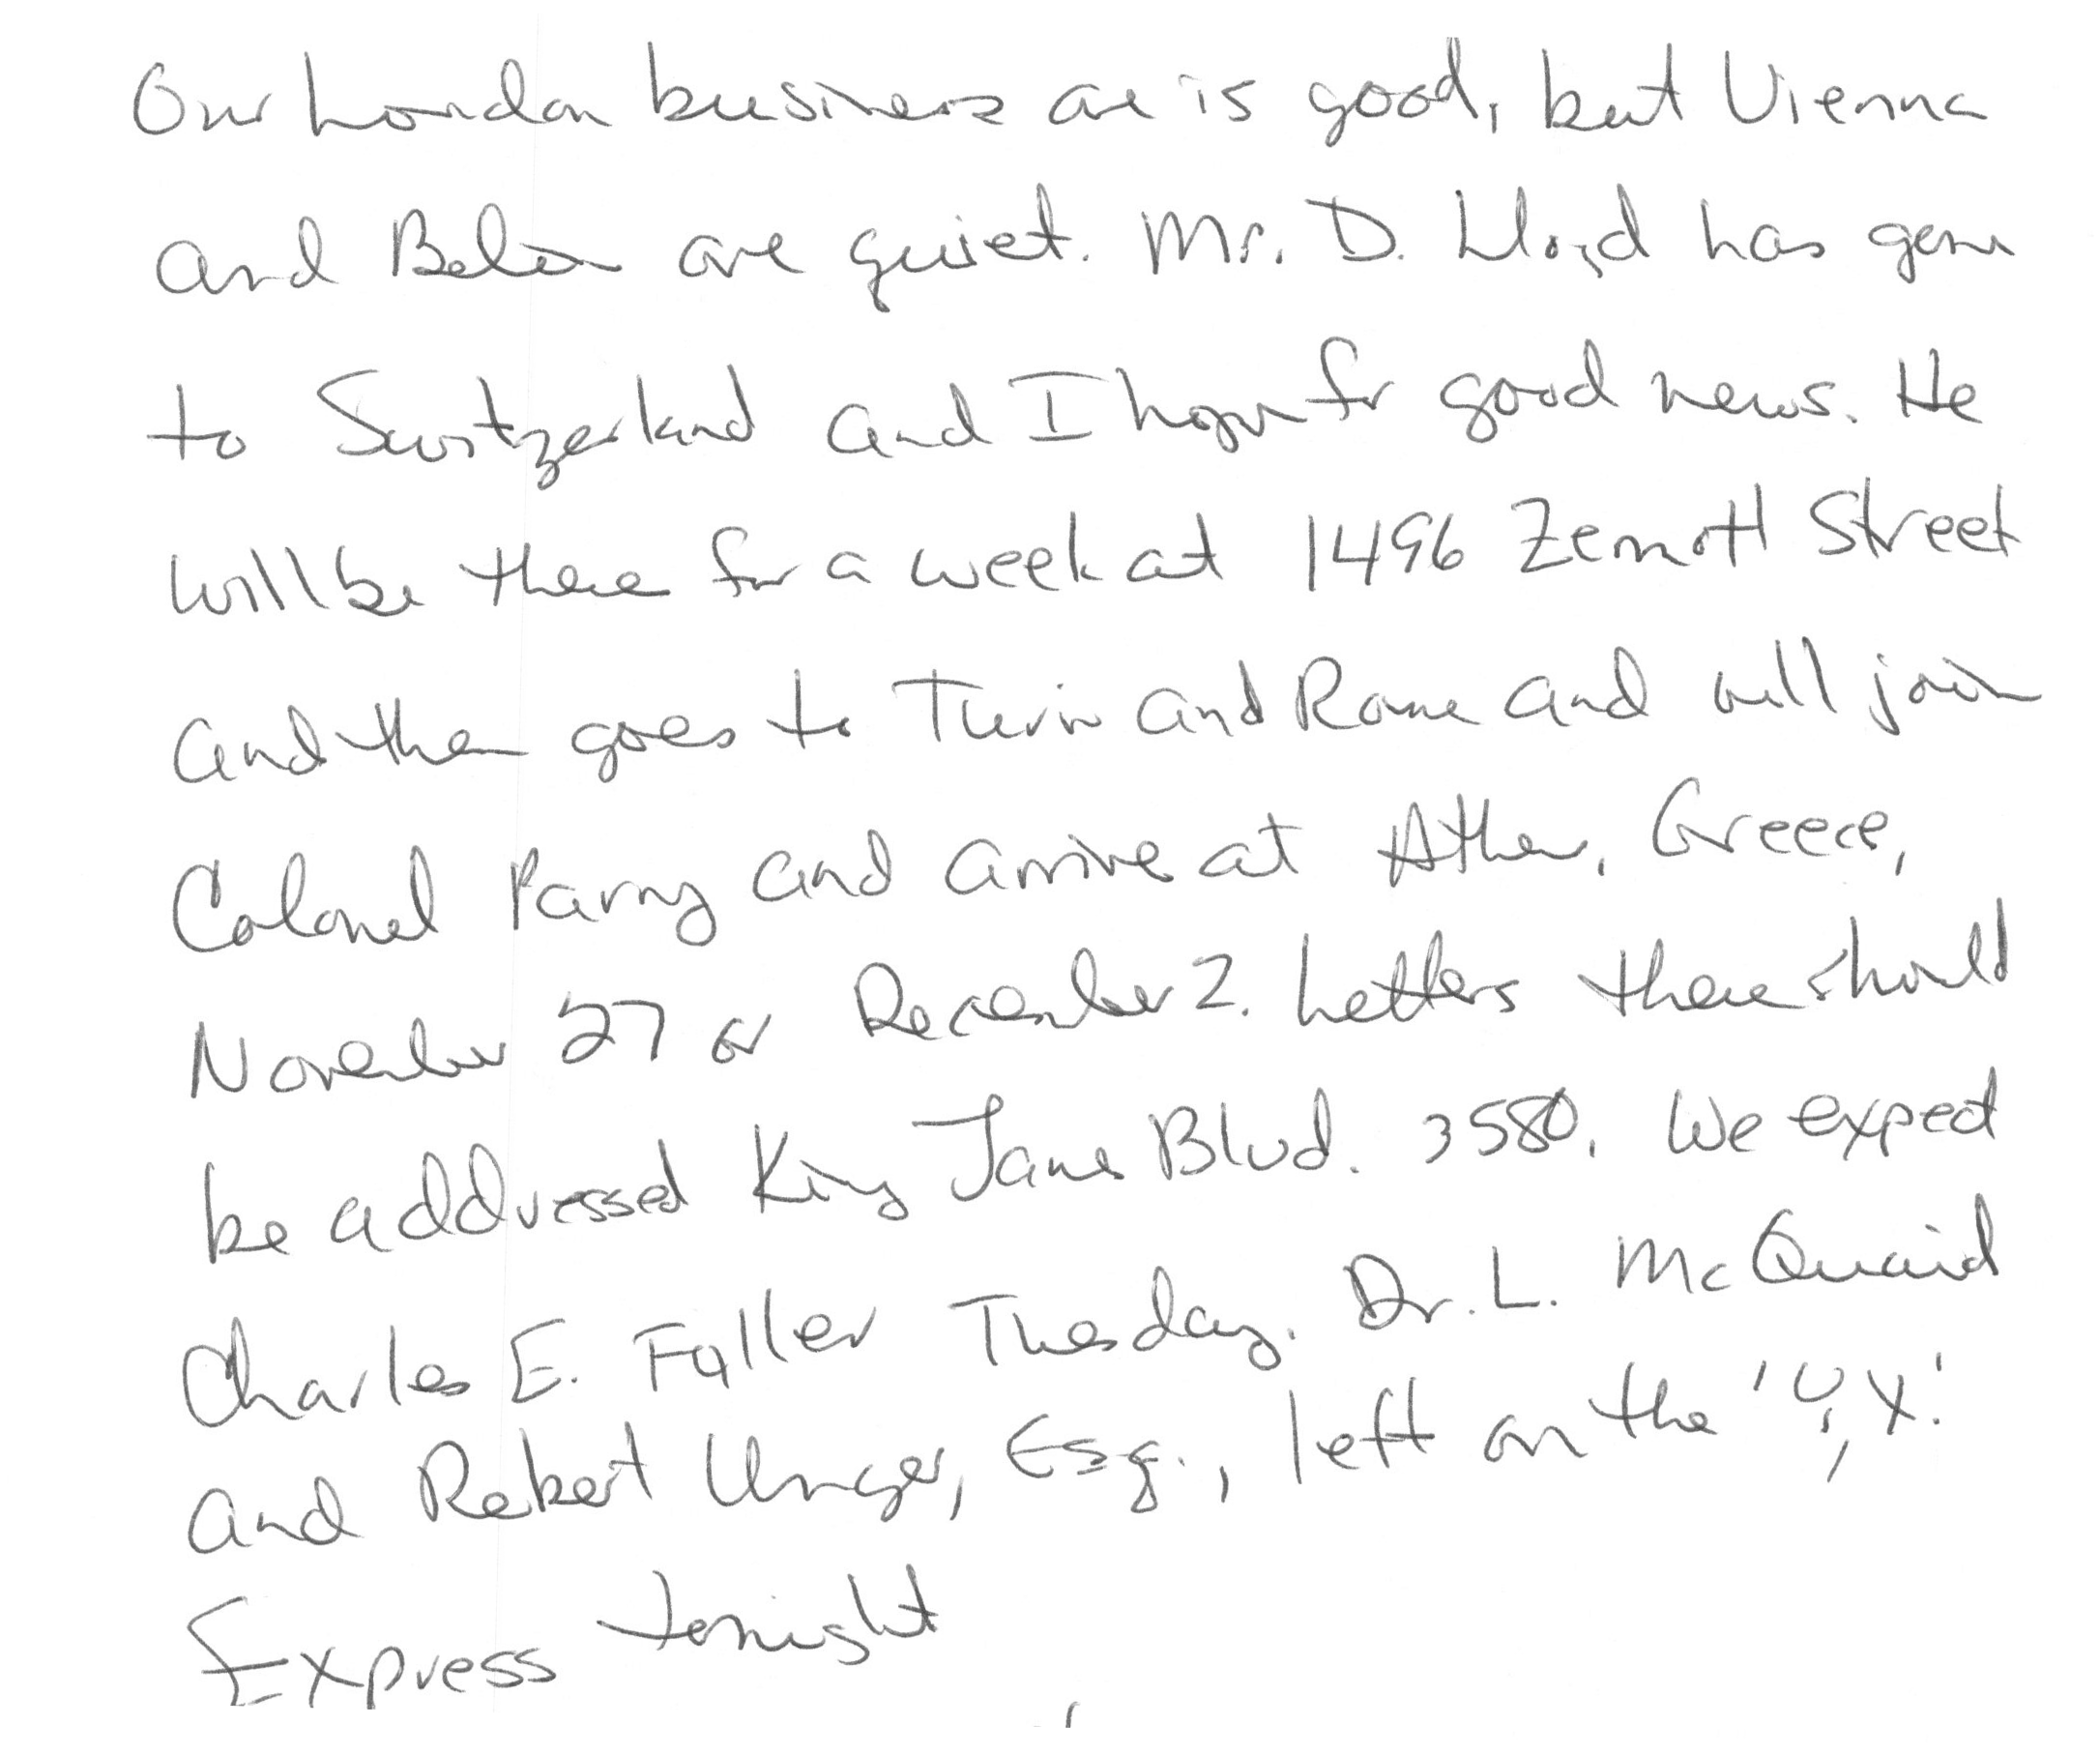 Our London business are is good, but Vienna
and Berlin are quiet. Mr. D. Lloyd has gone
to Switzerland and I hope for good news. He
will be there for a week at 1496 Zermott Street
and then goes to Turin and Rome and will join
Colonel Parry and arrive at Athens, Greece,
November 27 or December 2. Letters there should
be addressed King James Blvd. 3580. We expect
Charles E. Fuller Tuesday. Dr. L. McQuaid
and Robert Unger, Esq., left on the 'Y,X.'
Express tonight